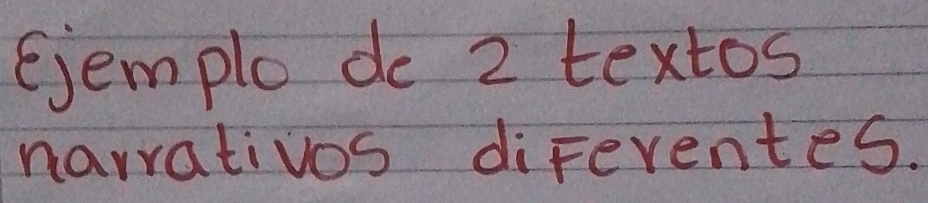 Ejemplo de 2 textos
narrativos diferentes.